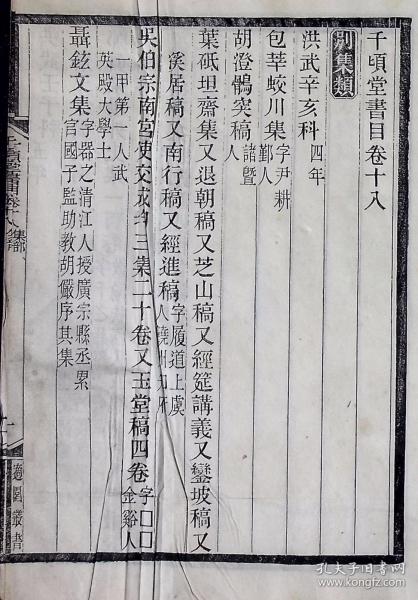 千頃堂書目卷十八
別集類
洪武辛亥科四年
包莘蛟川集字尹耕鄞人
胡澄鶻突稿諸暨人
葉砥坦齋集又退朝稿又芝山稿又經筵講義又鑾坡稿又
溪居稿又南行稿又經進稿字履道上虞人饒州
吳伯宗南宮使交成均三稾二十卷又玉堂稿四卷字□□金谿人
一甲第一人武
英殿大學士
聶鉉文集字器之清江人授廣宗縣丞累官國子監助教胡儼序其集
千頃堂書目卷十八 集部
一
適園叢書
孔夫子旧书网